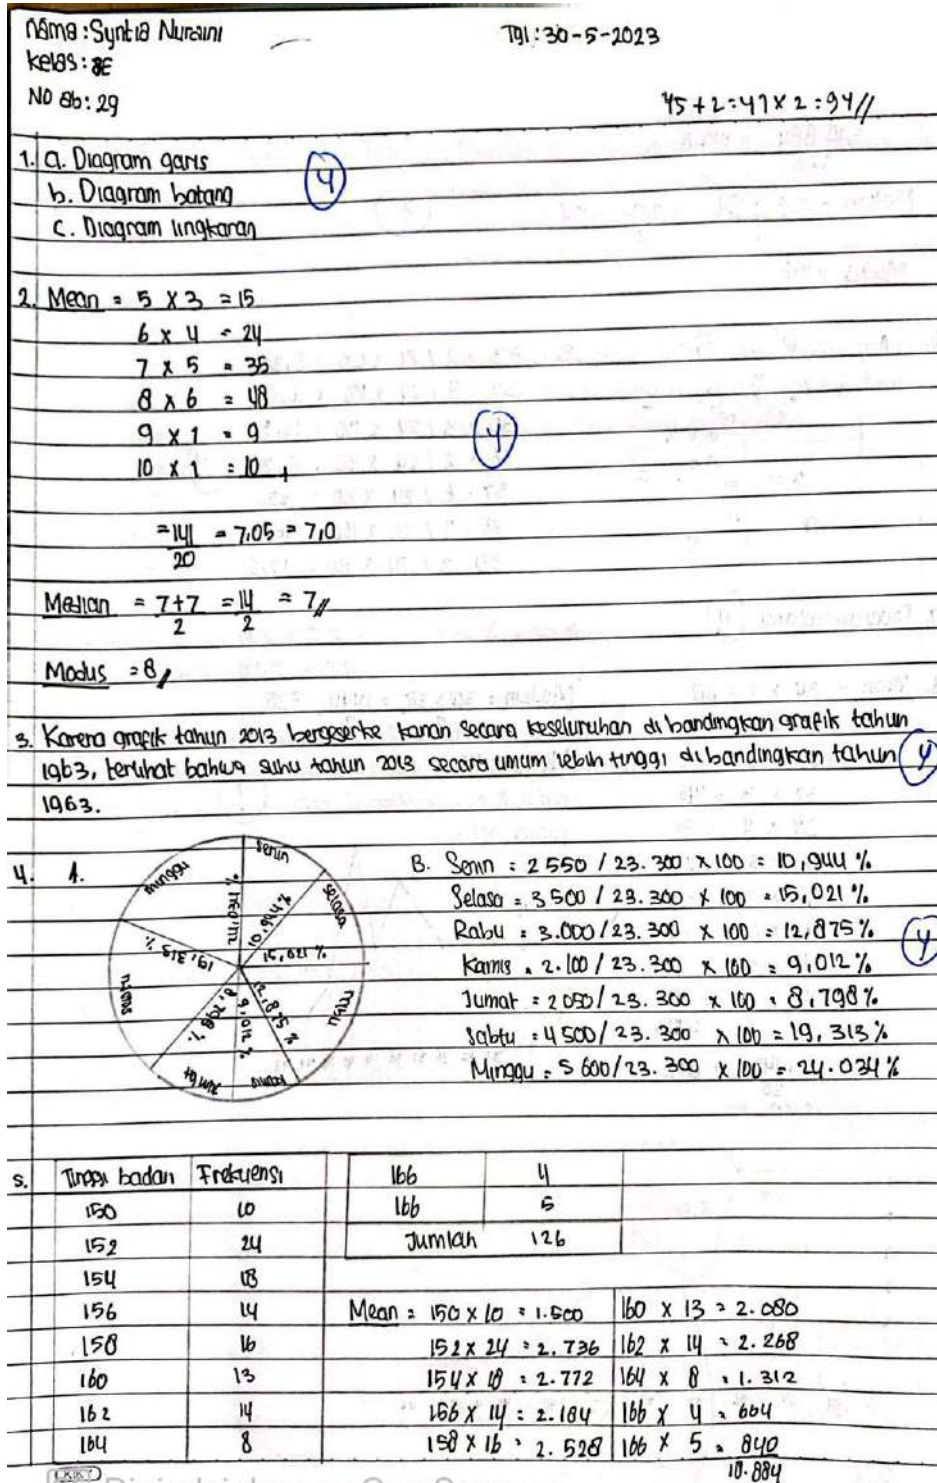 Nama : Syntia Nuraini
Tgl : 30-5-2023
Kelas : 8E
No ab : 29
45 + 2 = 47 x 2 = 94 //
1. a. Diagram garis
b. Diagram batang
c. Diagram lingkaran
4
2. Mean = 5 x 3 = 15
6 x 4 = 24
7 x 5 = 35
8 x 6 = 48
9 x 1 = 9
10 x 1 = 10 +
4
= 141 = 7,05 = 7,0
20
Median = 7+7 = 14 = 7 //
2 2
Modus = 8 //
3. Karena grafik tahun 2013 bergeser ke kanan secara keseluruhan di bandingkan grafik tahun
1963, terlihat bahwa suhu tahun 2013 secara umum lebih tinggi di bandingkan tahun
1963.
4
4. A.
senin
selasa
rabu
kamis
jumat
sabtu
minggu
15,021 %
12,875 %
9,012 %
8,798 %
19,313 %
B. Senin = 2 550 / 23.300 x 100 = 10,944 %
Selasa = 3 500 / 23.300 x 100 = 15,021 %
Rabu = 3.000/23.300 x 100 = 12,875 %
Kamis = 2.100 / 23.300 x 100 = 9,012 %
Jumat = 2 050/ 23.300 x 100 = 8,798 %
Sabtu = 4 500/ 23.300 x 100 = 19,313 %
Minggu = 5 600/23.300 x 100 = 24.034 %
4
5. Tinggi badan Frekuensi
150 10
152 24
154 18
156 14
158 16
160 13
162 14
164 8
166 4
166 5
Jumlah 126
Mean = 150 x 10 = 1.500
152 x 24 = 2.736
154 x 18 = 2.772
156 x 14 = 2.184
158 x 16 = 2.528
160 x 13 = 2.080
162 x 14 = 2.268
164 x 8 = 1.312
166 x 4 = 664
166 x 5 = 840
18.884
KIKY